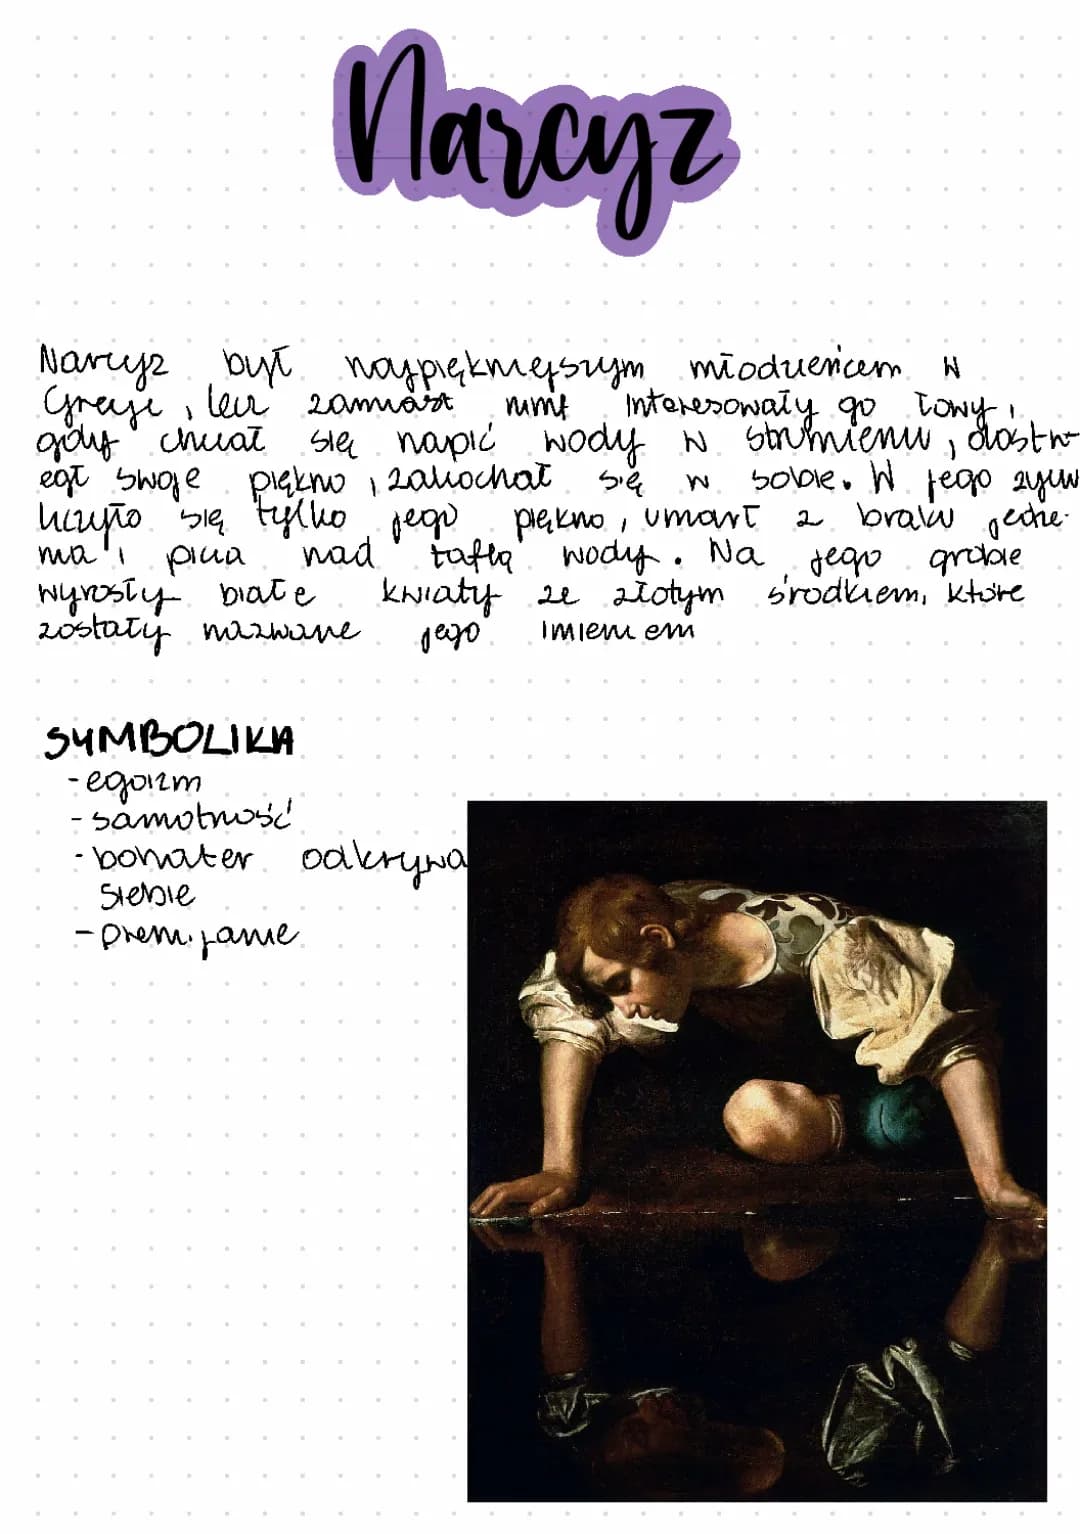 Narcyz
Narcyz był najpiękniejszym młodzieńcem w
Grecji, lecz zamiast nimf interesowały go łowy,
gdy chciał się napić wody w strumieniu, dostrz
egł swoje piękno, zakochał się w sobie. W jego życiu
liczyło się tylko jego piękno, umarł z braku jedze-
nia i picia nad taflą wody. Na jego grobie
wyrosły białe kwiaty ze złotym środkiem, które
zostały nazwane jego imieniem
SYMBOLIKA
- egoizm
- samotność
- bohater odkrywa
siebie
- przemijanie